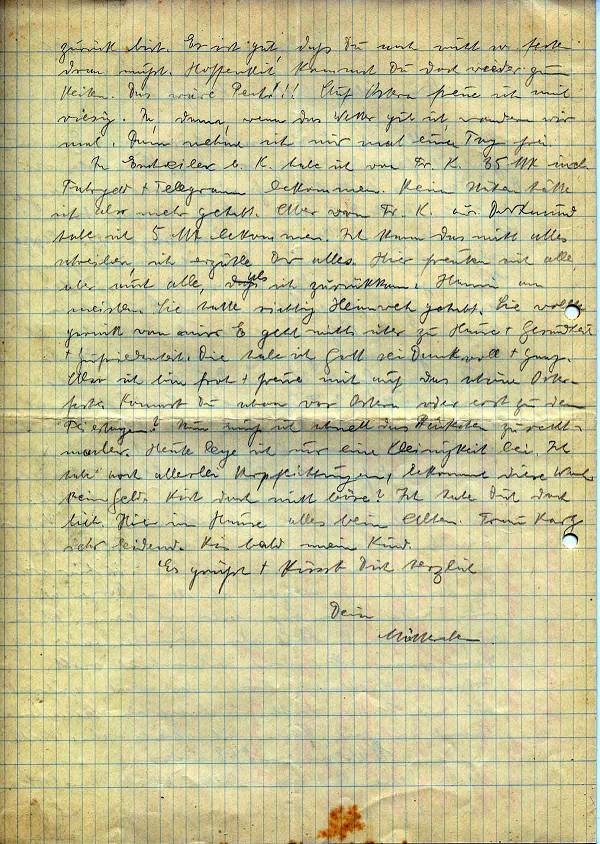 zurück bist. Es ist gut, daß Du noch nicht so fest
dran mußt. Hoffentlich kommst Du doch wieder zum
Reiten. Das wäre !!! Auf Ostern freue ich mich
riesig. Ja, wenn das Wetter gut ist, wandern wir
mal. Dann nehme ich mir mal einen Tag frei.
In b. K. habe ich von Fr. K. 35 MK
Fahrgeld + Telegramm bekommen. Kein hätte
ich also mehr gehabt. Aber von Fr. K. aus Dortmund
habe ich 5 MK bekommen. Ich kann das nicht alles
schreiben, ich erzähle Dir alles. Hier freuten sich alle,
aber auch alle, als ich zurückkam. am
meisten. Sie hatte richtig Heimweh gehabt. Sie wollte
zurück von mir. Es geht nichts über zu Hause + Gesundheit
+ Zufriedenheit. Die habe ich Gott sei Dank voll + ganz.
Aber ich bin froh + freue mich auf das schöne Oster-
fest. Kommst Du schon vor Ostern oder erst zu den
Feiertagen? Nun muß ich schnell das zurecht
machen. Heute lege ich nur eine Kleinigkeit bei. Ich
habe noch allerlei Verpflichtungen, bekomme diese Woche
kein Geld. Bist doch nicht böse? Ich habe Dich doch
lieb. Hier im Hause alles beim Alten. Frau
sehr leidend. Bis bald mein Kind.
Es grüßt + küsst Dich herzlich
Dein
Mütterchen.